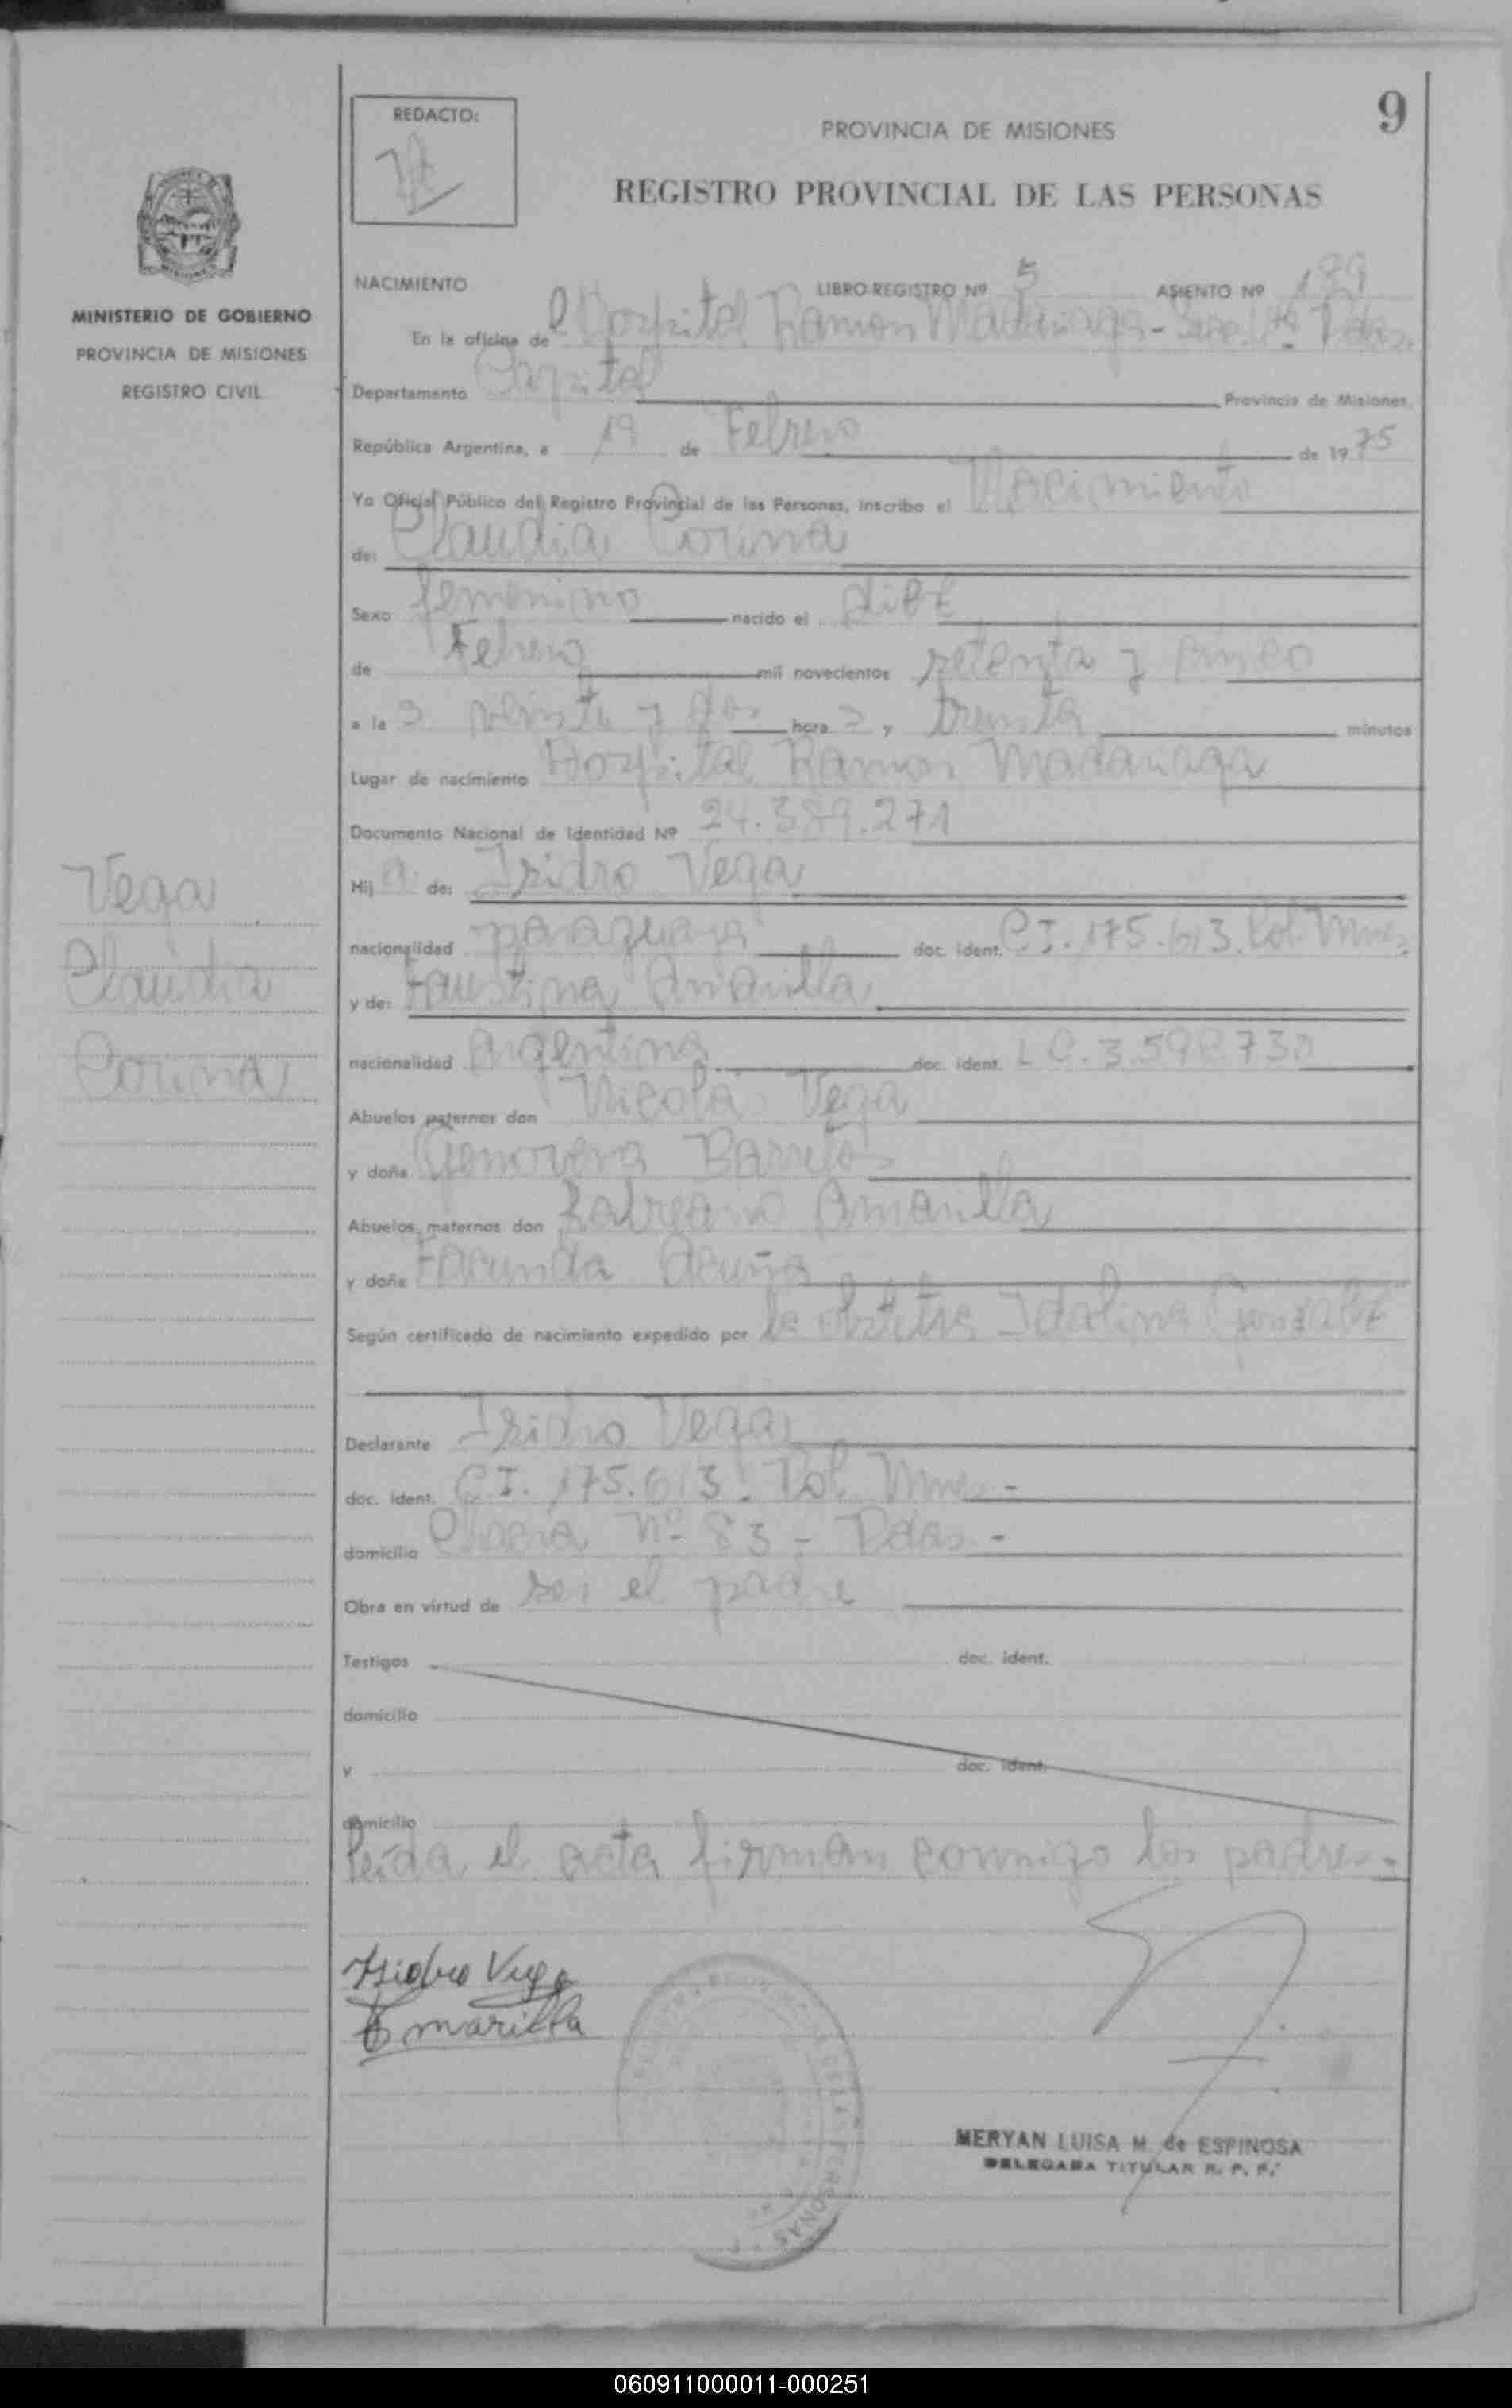 9
REDACTO:
PROVINCIA DE MISIONES
REGISTRO PROVINCIAL DE LAS PERSONAS
MINISTERIO DE GOBIERNO
PROVINCIA DE MISIONES
REGISTRO CIVIL
NACIMIENTO LIBRO-REGISTRO Nº 5 ASIENTO Nº 189
En la oficina de Hospital Ramon Madariaga - Pdas.
Departamento Capital Provincia de Misiones,
República Argentina, a 19 de Febrero de 1975
Yo Oficial Público del Registro Provincial de las Personas, inscribo el Nacimiento
de: Claudia Corina
Sexo femenino nacido el diez
de Febrero mil novecientos setenta y cinco
a la s veinte y dos hora s y treinta minutos
Lugar de nacimiento Hospital Ramon Madariaga
Documento Nacional de Identidad Nº 24.389.271
Hij a de: Isidro Vega
nacionalidad paraguaya doc. ident. C.I. 175.613. Pol. Mnes.
y de: Faustina Amarilla
nacionalidad Argentina doc. ident. L.C. 3.592.730
Abuelos paternos don Nicolas Vega
y doña Genoveva Barreto
Abuelos maternos don Amarilla
y doña Facunda Acuña
Según certificado de nacimiento expedido por la obstetra Idalina Gonzalez
Declarante Isidro Vega
doc. ident. C.I. 175.613. Pol. Mnes -
domicilio Nº 83 - Pdas -
Obra en virtud de ser el padre
Testigos doc. ident.
domicilio
y doc. ident.
domicilio
Leida el acta firman conmigo los padres.-
Vega
Claudia
Corina
Isidro Vega
Amarilla
MERYAN LUISA M. de ESPINOSA
DELEGADA TITULAR R. P. P.
060911000011-000251